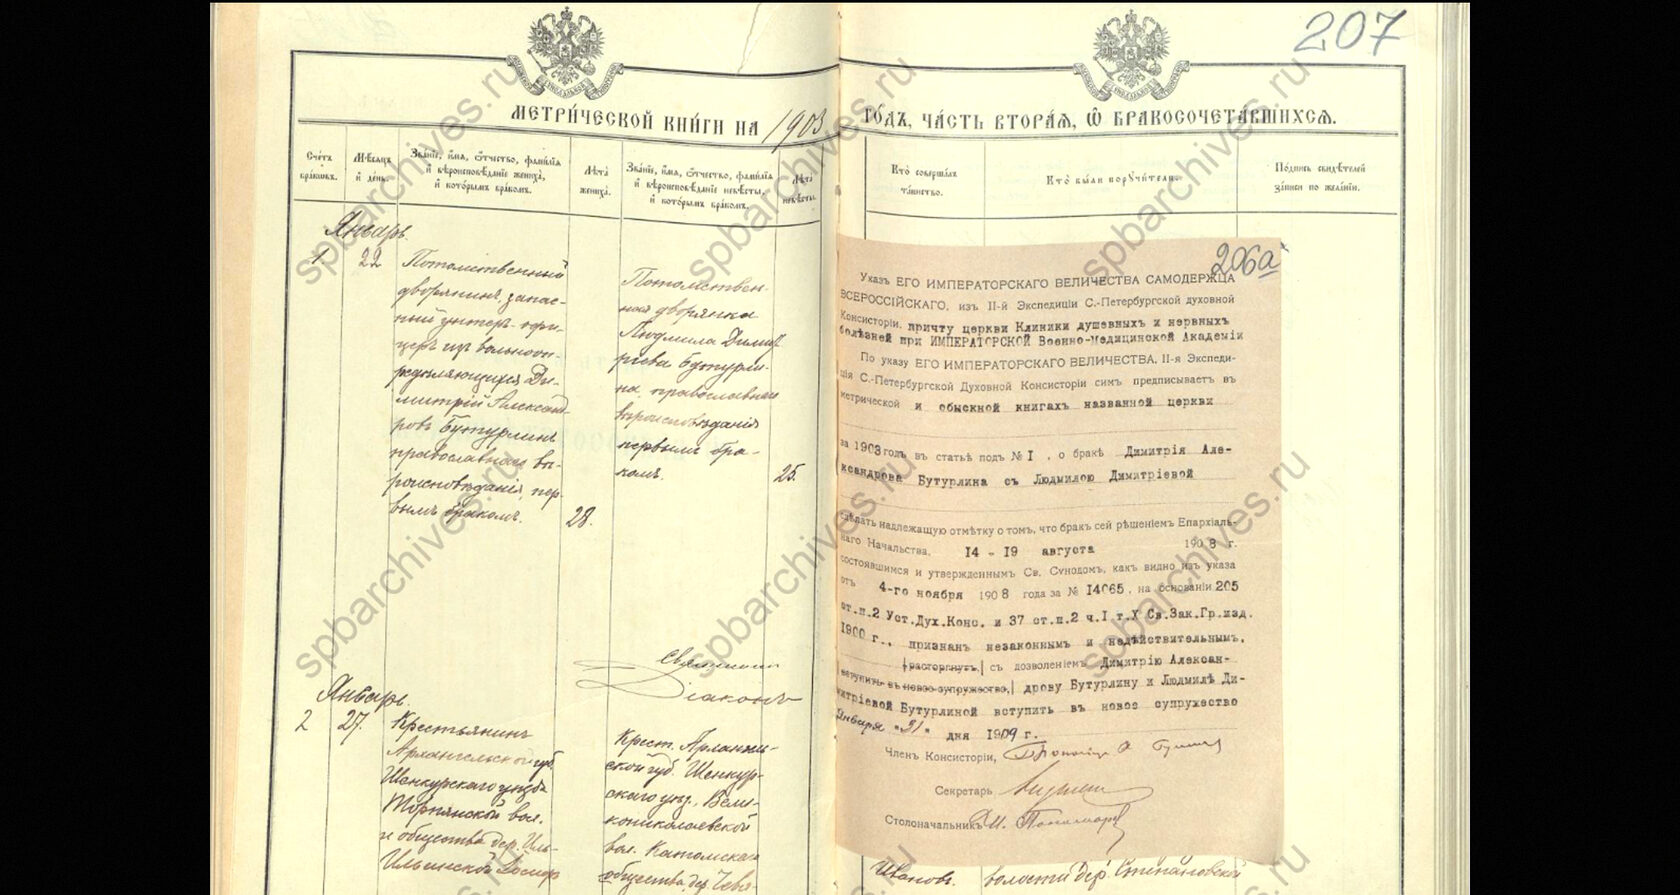 207
МЕТРИ́ЧЕСКОЙ КНИ́ГИ НА 1903 ГО́ДЪ, ЧА́СТЬ ВТОРА́Я, Ѡ БРАКОСОЧЕТА́ВШИХСЯ.
Счетъ браковъ.
Мѣсяцъ и день.
Зва́ніе, и́мя, ѻтчество, фами́лія и вѣроисповѣ́даніе жениха̀, и кото́рымъ бра́комъ.
Лѣта жениха̀.
Зва́ніе, и́мя, ѻтчество, фами́лія и вѣроисповѣ́даніе невѣ́сты, и кото́рымъ бра́комъ.
Лѣта невѣ́сты.
Кто̀ соверша́лъ та́инство.
Кто̀ бы́ли поручи́тели.
По́дпись свидѣ́телей за́писи по жела́нію.
Январь.
1
22
Потомственный
дворянинъ, запас-
ный унтеръ-офи-
церъ изъ вольноон-
редѣляющихся Ди-
митрій Александ-
ровъ Бутурлинъ
православнаго вѣ-
роисповѣданія, пер-
вымъ бракомъ.
28.
Потомствен-
ная дворянка
Людмила Димит-
ріева Бутурли-
на, православнаго
вѣроисповѣданія
первымъ бра-
комъ.
25.
Діаконъ
Январь.
2
27.
Крестьянинъ
Архангельской губ.
Шенкурскаго уѣзда
вол.
и общества дер. Иль-
Крест. Арханге-
ской губ. Шенкур-
скаго уѣз., Вели-
кониколаевской
вол.
общества, дер.
206а
Указъ ЕГО ИМПЕРАТОРСКАГО ВЕЛИЧЕСТВА САМОДЕРЖЦА
ВСЕРОССІЙСКАГО, изъ II-й Экспедиціи С.-Петербургской духовной
Консисторіи, причту церкви Клиники душевныхъ и нервныхъ
болѣзней при ИМПЕРАТОРСКОЙ Военно-Медицинской Академіи
По указу ЕГО ИМПЕРАТОРСКАГО ВЕЛИЧЕСТВА, II-я Экспеди-
ція С.-Петербургской Духовной Консисторіи симъ предписываетъ въ
метрической и обыскной книгахъ названной церкви
за 1903 годъ въ статьѣ подъ № I , о бракѣ Димитрія Але-
ксандрова Бутурлина съ Людмилою Димитріевой
сдѣлать надлежащую отмѣтку о томъ, что бракъ сей рѣшеніемъ Епархіаль-
наго Начальства, I4 - I9 августа 1908 г.
состоявшимся и утвержденнымъ Св. Сѵнодомъ, какъ видно изъ указа
отъ 4-го ноября 1908 года за № I4065, на основаніи 205
ст.п.2 Уст.Дух.Конс. и 37 ст.п.2 ч.I т.X Св.Зак.Гр.изд.
I900 г., признанъ незаконнымъ и недѣйствительнымъ,
расторгнутъ, съ дозволеніемъ Димитрію Алексан-
вступить въ новое супружество, дрову Бутурлину и Людмилѣ Ди-
митріевой Бутурлиной вступить въ новое супружество
Января "31" дня 1909 г.
Членъ Консисторіи,
Секретарь
Столоначальникъ И. Пономаревъ
Ивановъ. волости дер. Степановской
spbarchives.ru
spbarchives.ru
spbarchives.ru
spbarchives.ru
spbarchives.ru
spbarchives.ru